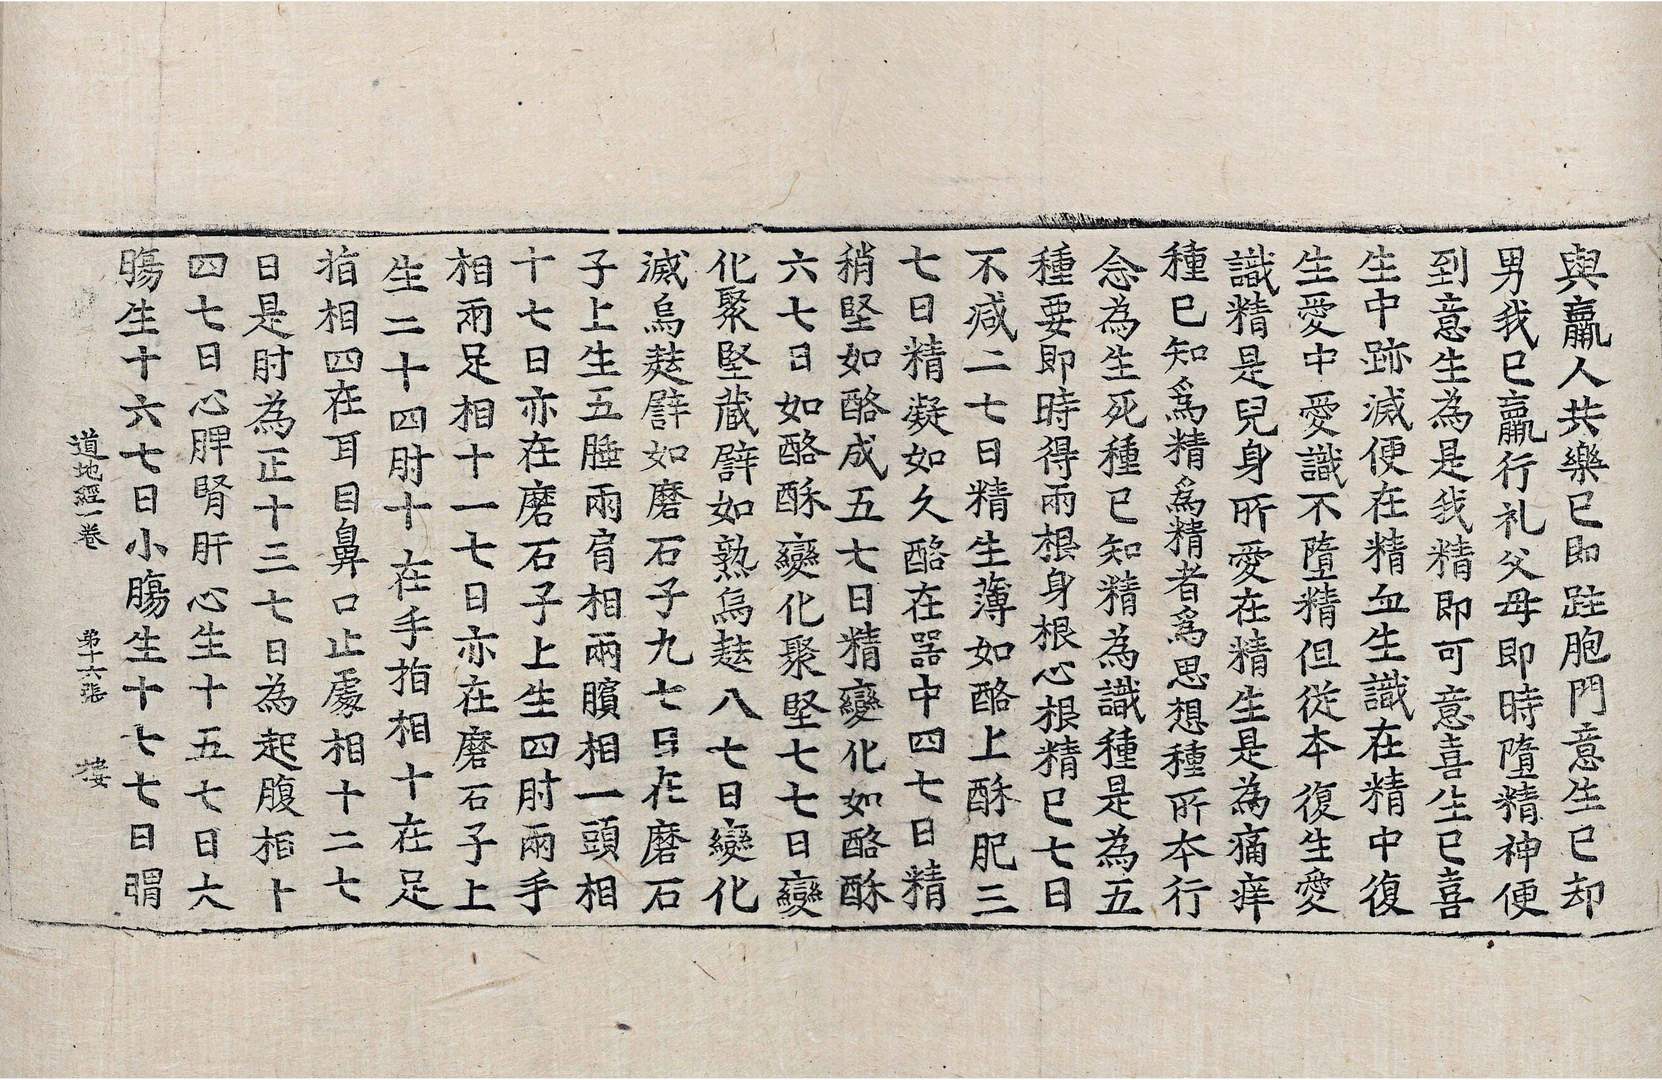 與羸人共樂已即跓胞門意生已却
男我已羸行礼父母即時墮精神便
到意生為是我精即可意喜生已喜
生中跡滅便在精血生識在精中復
生愛中愛識不墮精但從本復生愛
識精是兒身所愛在精生是為痛痒
種已知為精為精者為思想種所本行
念為生死種已知精為識種是為五
種要即時得兩根身根心根精已七日
不减二七日精生薄如酪上酥肥三
七日精凝如久酪在器中四七日精
稍堅如酪成五七日精變化如酪酥
六七日如酪酥變化聚堅七七日變
化聚堅藏譬如熟烏麩八七日變化
滅烏麩譬如磨石子九七日在磨石
子上生五腄兩肩相兩臏相一頭相
十七日亦在磨石子上生四肘兩手
相兩足相十一七日亦在磨石子上
生二十四肘十在手指相十在足
指相四在耳目鼻口止處相十二七
日是肘為正十三七日為起腹相十
四七日心脾腎肝心生十五七日大
腸生十六七日小腸生十七七日䐔
道地經一卷 第十六張